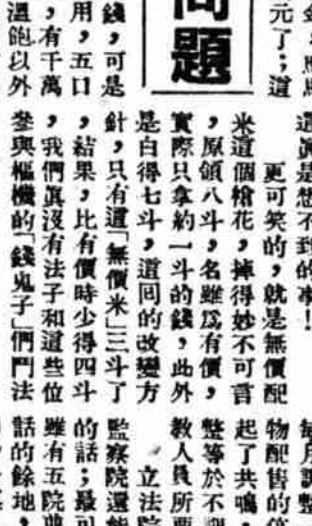 元了;這
問題
錢,可是
用,五口
,有千萬
溫飽以外
還眞是想不到的事!
更可笑的,就是無價配
米這個槍花,掉得妙不可言
,原領八斗,名雖爲有價,
實際只拿約一斗的錢,此外
是白得七斗,這囘的改變方
針,只有這「無價米」三斗了
,結果,比有價時少得四斗
,我們眞沒有法子和這些位
參與樞機的「錢鬼子」們鬥法
每月調整
物配售的
起了共鳴,
整等於不
教人員所要
立法院
監察院還能
的話;最可
雖有五院
話的餘地,